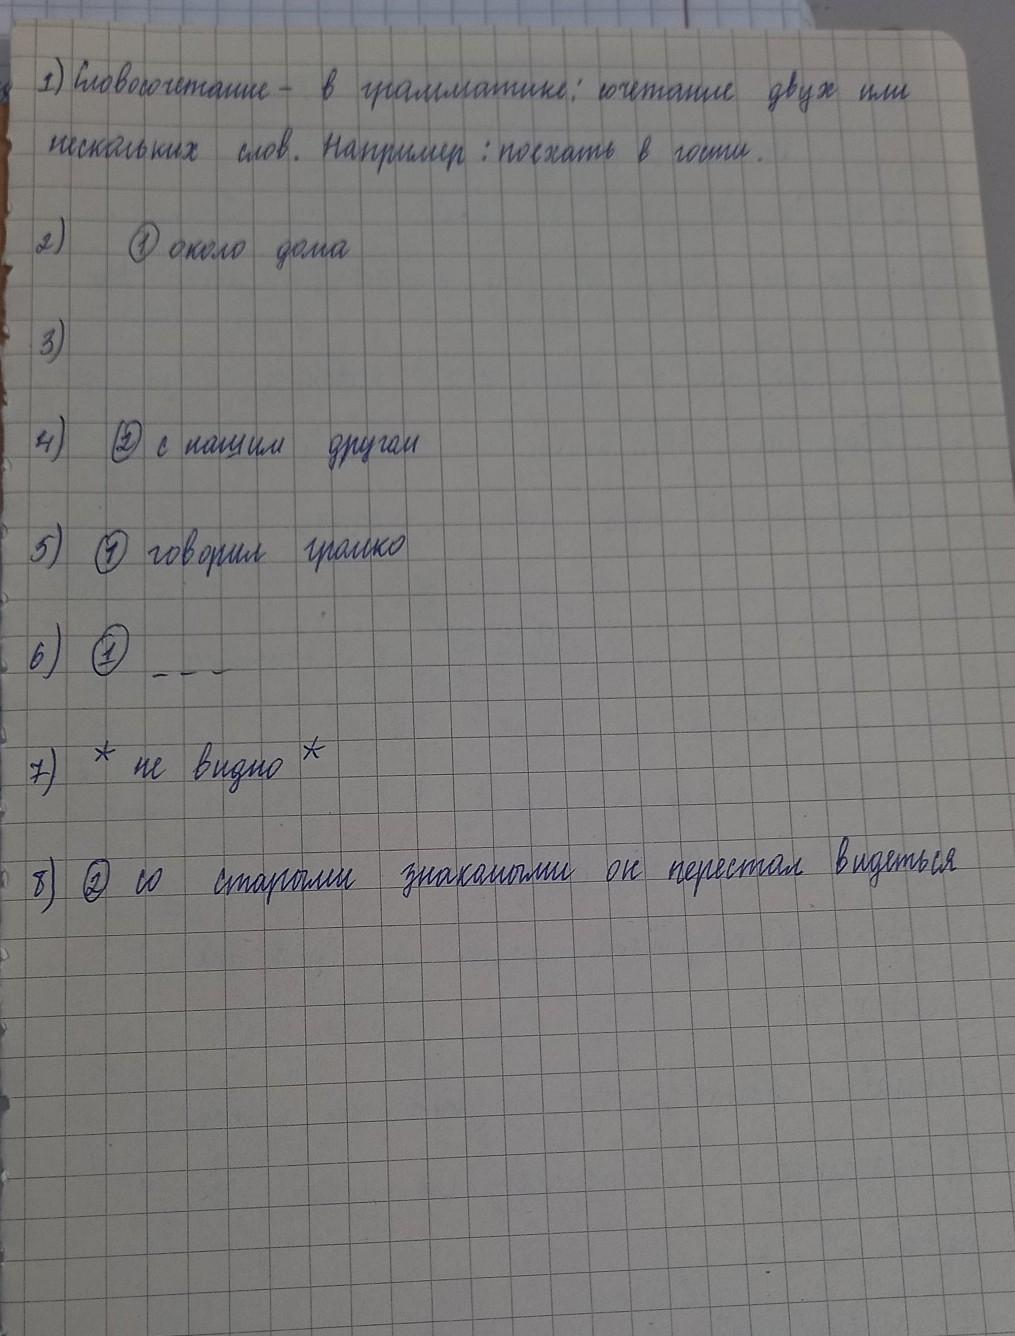 1) Словосочетание - в грамматике: сочетание двух или
нескольких слов. Например: поехать в гости.
2) ① около дома
3)
4) ② с нашим другом
5) ① говорил громко
6) ① _ _ _
7) * не видно *
8) ② со старыми знакомыми он перестал видеться